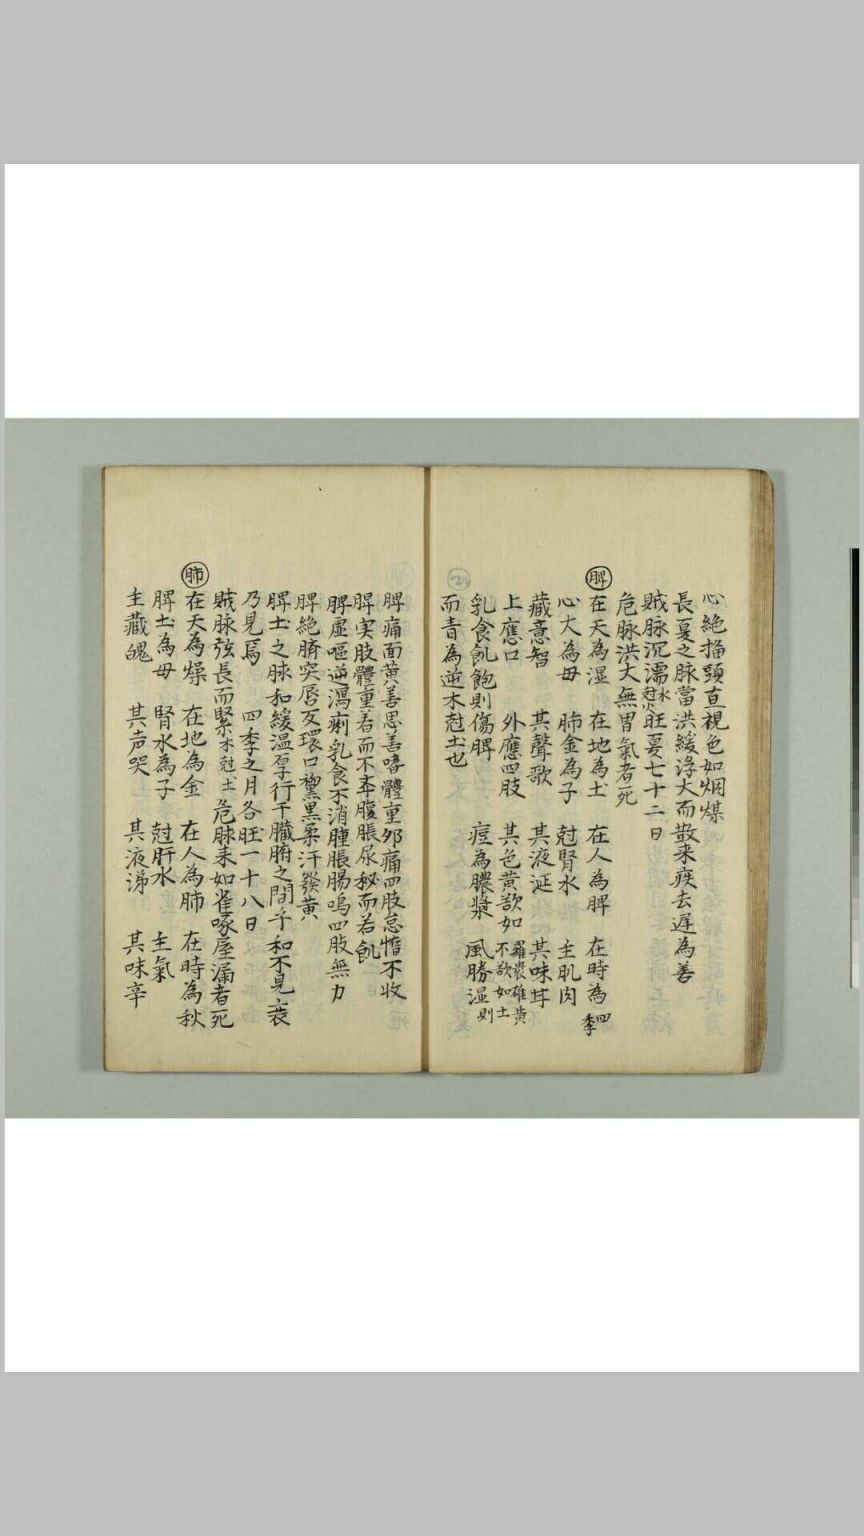 心絶揺頭直視色如烟煤
長夏之脉當洪緩浮大而散来疾去遅為善
賊脉沉濡水尅火旺夏七十二日
危脉洪大無胃氣者死
脾
在天為湿 在地為土 在人為脾 在時為四季
心火為母 肺金為子 尅腎水 主肌肉
藏意智 其聲歌 其液涎 其味甘
上應口 外應四肢 其色黄欲如羅裹雄黄不欲如土
乳食飢飽則傷脾 痘為膿漿 風勝湿則
而青為逆木尅土也
脾痛面黄善思善嗜體重卯痛四肢怠惰不收
脾实肢體重着而不 腹脹尿秘而若飢
脾虛嘔逆瀉痢乳食不消腫脹腸鳴四肢無力
脾絶臍突唇反環口黧黒柔汗發黄
脾土之脉和緩温厚行于臟腑之間乎和不見衰
乃見焉 四季之月各旺一十八日
賊脉弦長而緊木尅土 危脉来如雀啄屋漏者死
肺
在天為燥 在地為金 在人為肺 在時為秋
脾土為母 腎水為子 尅肝水 主氣
主藏魄 其声哭 其液涕 其味辛